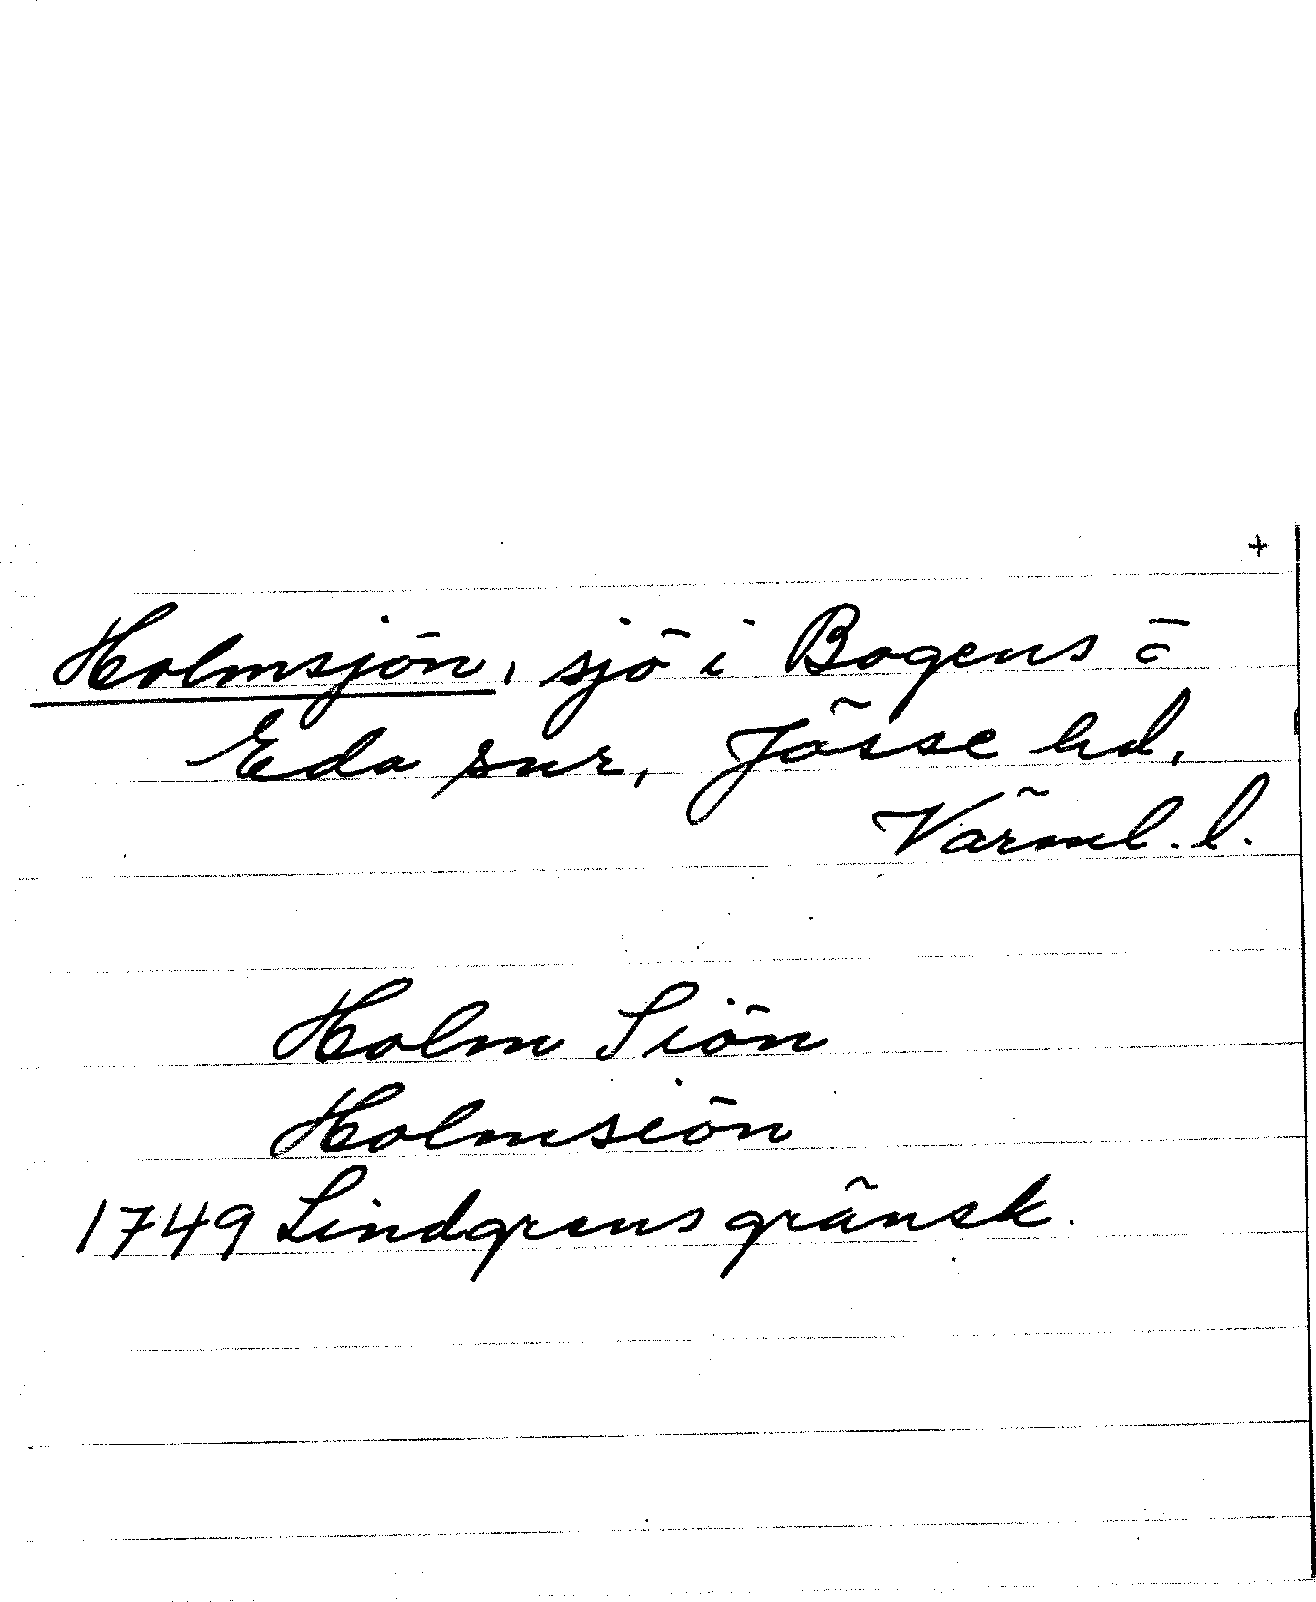 +
Holmsjön, sjö i Bogens o
Eda snr, Jösse hd,
Värml. l.
Holm Siön
Holmsiön
1749 Lindgrens gränsk.